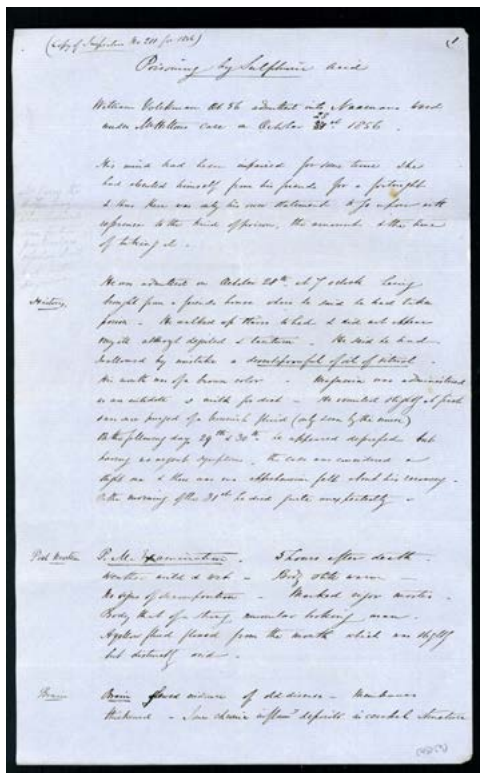 (Copy of Inspection No 200 for 1856)
1
Poisoning by Sulphuric acid
William Volckman aet 56 admitted into Naaman's ward
under Mr Hilton's care on October 28 1856.
His mind had been impaired for some time &he
had absented himself from his friends for a fortnight
& thus there was only his own statement to go upon with
reference to the kind of poison, the amount & the time
of taking it.
History
He was admitted on October 28th at 7 o'clock being
brought from a friends house where he said he had taken
poison - He walked up stairs to bed & did not appear
very ill although dejected & taciturn - He said he had
swallowed by mistake a of oil of vitriol -
His mouth was of a brown color - Magnesia was administered
as an antidote & milk for diet - He vomited slightly at first
and was purged of a brownish fluid (only seen by the nurse)
On the following day 29th & 30th he appeared depressed but
having no urgent symptoms - the case was considered a
slight one & there was no apprehension felt about his recovery -
On the morning of the 31st he died quite unexpectedly -
Post Mortem
P.M. Examination. 5 hours after death -
Weather mild & wet - Body still warm -
No signs of decomposition - Marked rigor mortis -
Body that of a strong muscular looking man -
A yellow fluid flowed from the mouth which was slightly
but distinctly acid -
Brain
Brain showed evidence of old disease - Membranes
thickened - Some chronic inflamy deposits in structure